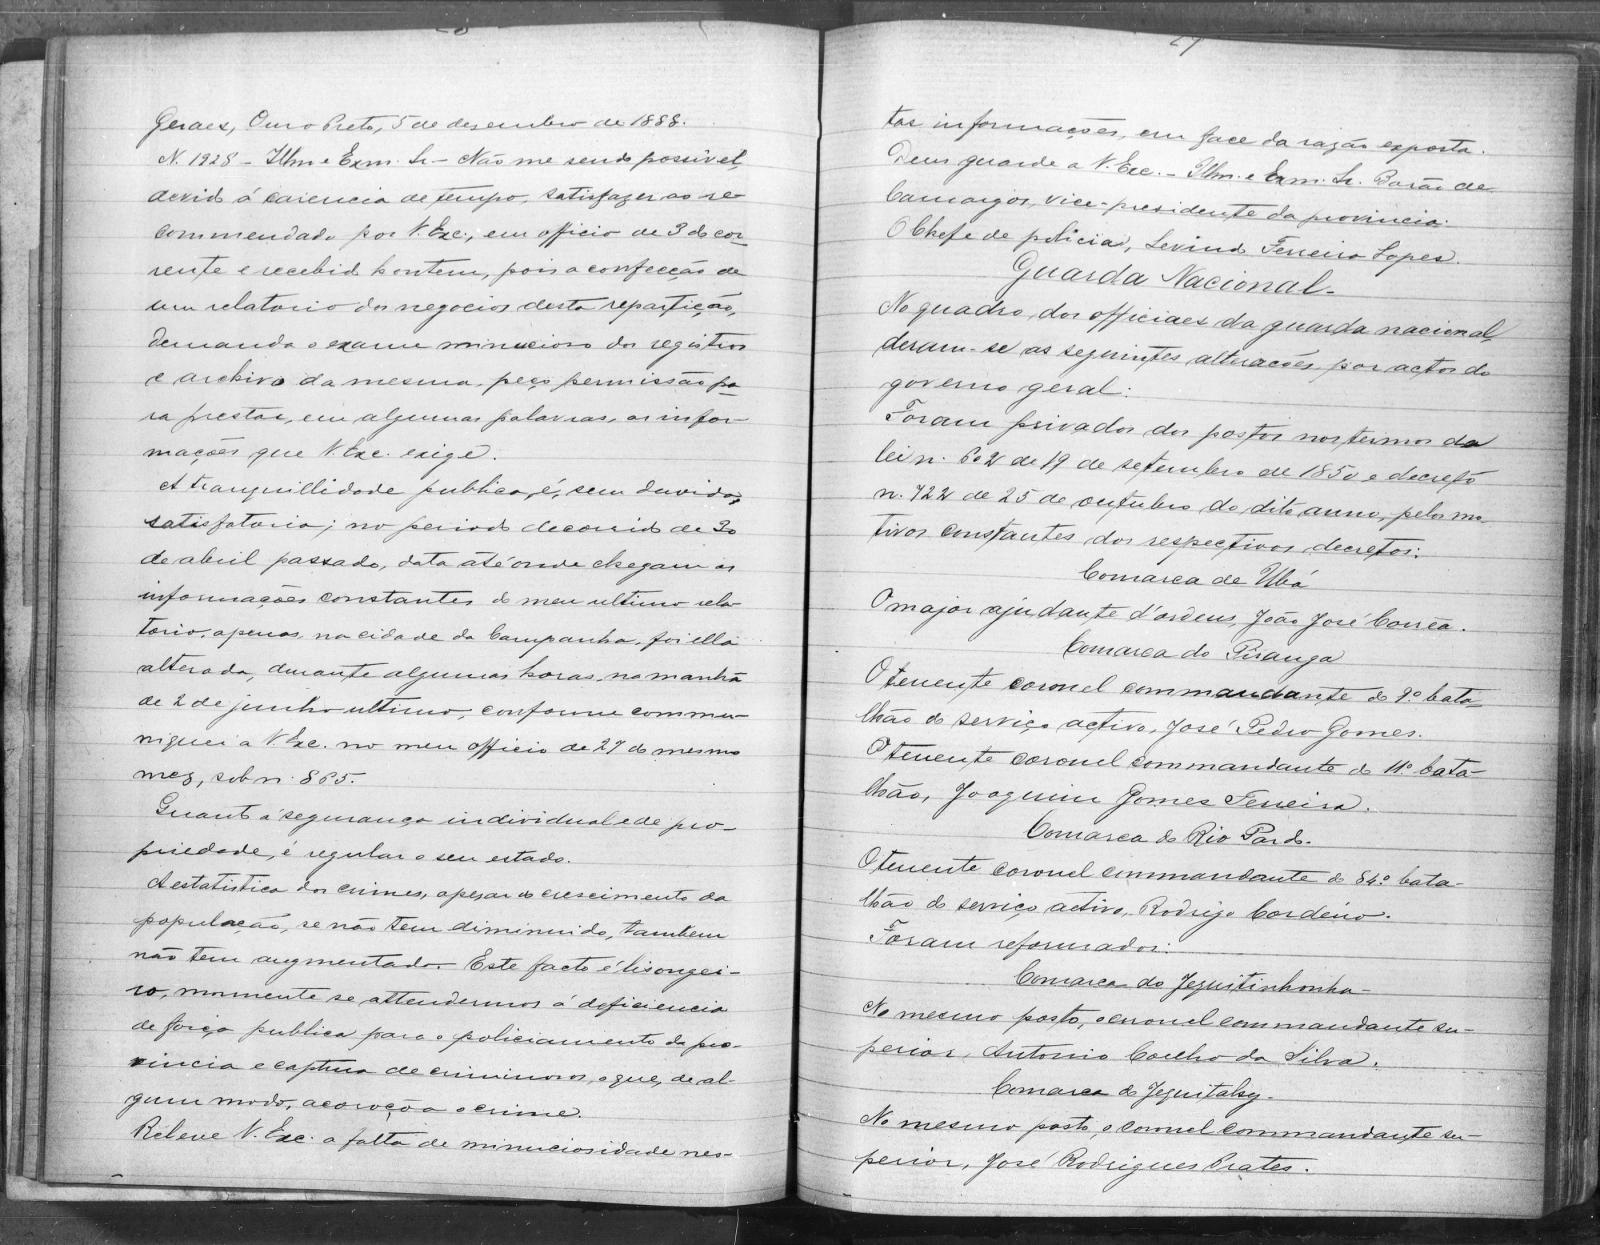 Geraes, Ouro Preto, 5 de dezembro de 1888.
N. 1928 - Illm e Exm. Sr - Não me sendo possivel,
devido á carencia de tempo, satisfazer ao re-
commendado por V. Exc., em officio de 3 do cor-
rente e recebido hontem, pois a confecção de
um relatorio dos negocios desta repartição,
demanda o exame minucioso dos registros
e archivo da mesma, peço permissão pa-
ra prestar, em algumas palavras, as infor-
mações que V. Exc. exige.
A tranquillidade publica, é, sem duvida,
satisfatoria; no periodo decorrido de 30
de abril passado, data até onde chegam as
informações constantes do meu ultimo rela-
torio, apenas, na cidade da Campanha, foi ella
alterada, durante algumas horas, na manhã
de 2 de junho ultimo, conforme commu-
niquei a V. Exc. no meu officio de 27 do mesmo
mez, sob n. 865.
Quanto á segurança individual e de pro-
priedade, é regular o seu estado.
A estatistica dos crimes, apezar do crescimento da
população, se não tem diminuido, tambem
não tem augmentado. Este facto é lisongei-
ro, mormente se attendermos á deficiencia
de força publica para o policiamento da pro-
vincia e captura de criminosos, o que, de al-
gum modo, acoroçôa o crime.
Releve V. Exc. a falta de minuciosidade nes-
27
tas informações, em face da razão exposta.
Deus guarde a V. Exc. - Illm. e Exm. Sr. Barão de
Camargos, vice-presidente da provincia.
O Chefe de policia, Levindo Ferreira Lopes.
Guarda Nacional-
No quadro dos officiaes da guarda nacional,
deram-se as seguintes alterações, por actos do
governo geral:
Foram privados dos postos nos termos da
lei n. 602 de 19 de setembro de 1850 e decreto
n. 722 de 25 de outubro do dito anno, pelos mo-
tivos constantes dos respectivos decretos:
Comarca de Ubá
O major ajudante d'ordens, João José Corrêa.
Comarca do Piranga
O tenente coronel commandante do 9º bata-
lhão do serviço activo, José Pedro Gomes.
O tenente coronel commandante do 11º bata-
lhão, Joaquim Gomes Ferreira.
Comarca do Rio Pardo.
O tenente coronel commandante do 84º bata-
lhão do serviço activo, Rodrigo Cordeiro.
Foram reformados:
Comarca do Jequitinhonha-
No mesmo posto, o coronel commandante su-
perior, Antonio Coelho da Silva.
Comarca do Jequitahy-
No mesmo posto, o coronel commandante su-
perior, José Rodrigues Prates.